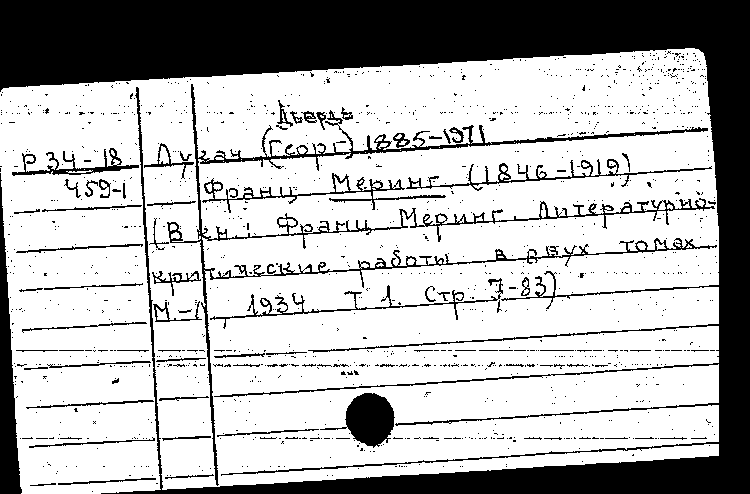 Дьердь
Р 34-18 Лукач (Георг) 1885-1971
459-1 Франц Меринг. (1846-1919)
(В кн.: Франц Меринг. Литературно-
критические работы в двух томах
М.-Л., 1934. Т 1. Стр. 7-83)